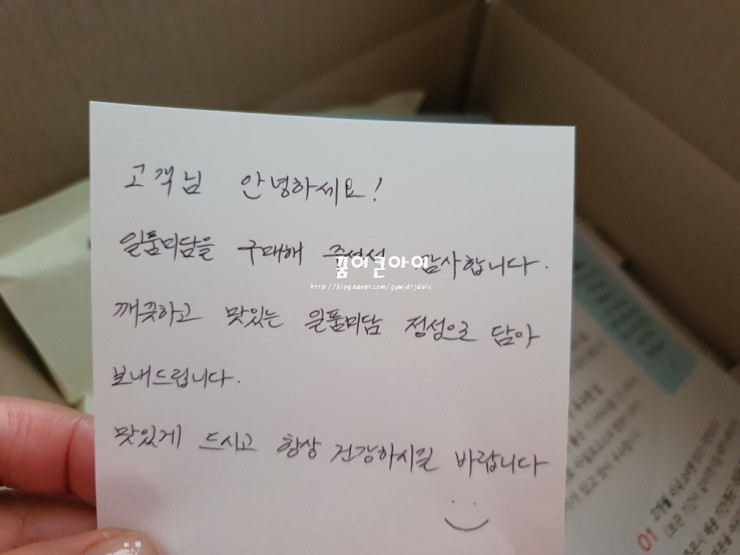 고객님 안녕하세요!
일품미담을 구매해 주셔서 감사합니다.
꿈이큰아이
깨끗하고 맛있는 일품미담 정성으로 담아
보내드립니다.
맛있게 드시고 항상 건강하시길 바랍니다
01